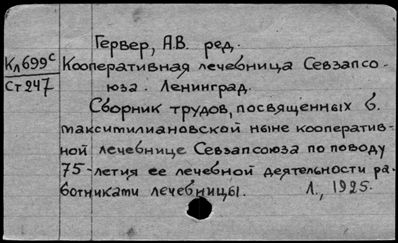 Гервер, А.В. ред.
Кл699с Кооперативная лечебница Севзапсо-
Ст247 юза. Ленинград.
Сборник трудов, посвященных б.
максимилиановской ныне кооператив-
ной лечебнице Севзапсоюза по поводу
75-летия ее лечебной деятельности ра-
ботниками лечебницы. Л., 1925.